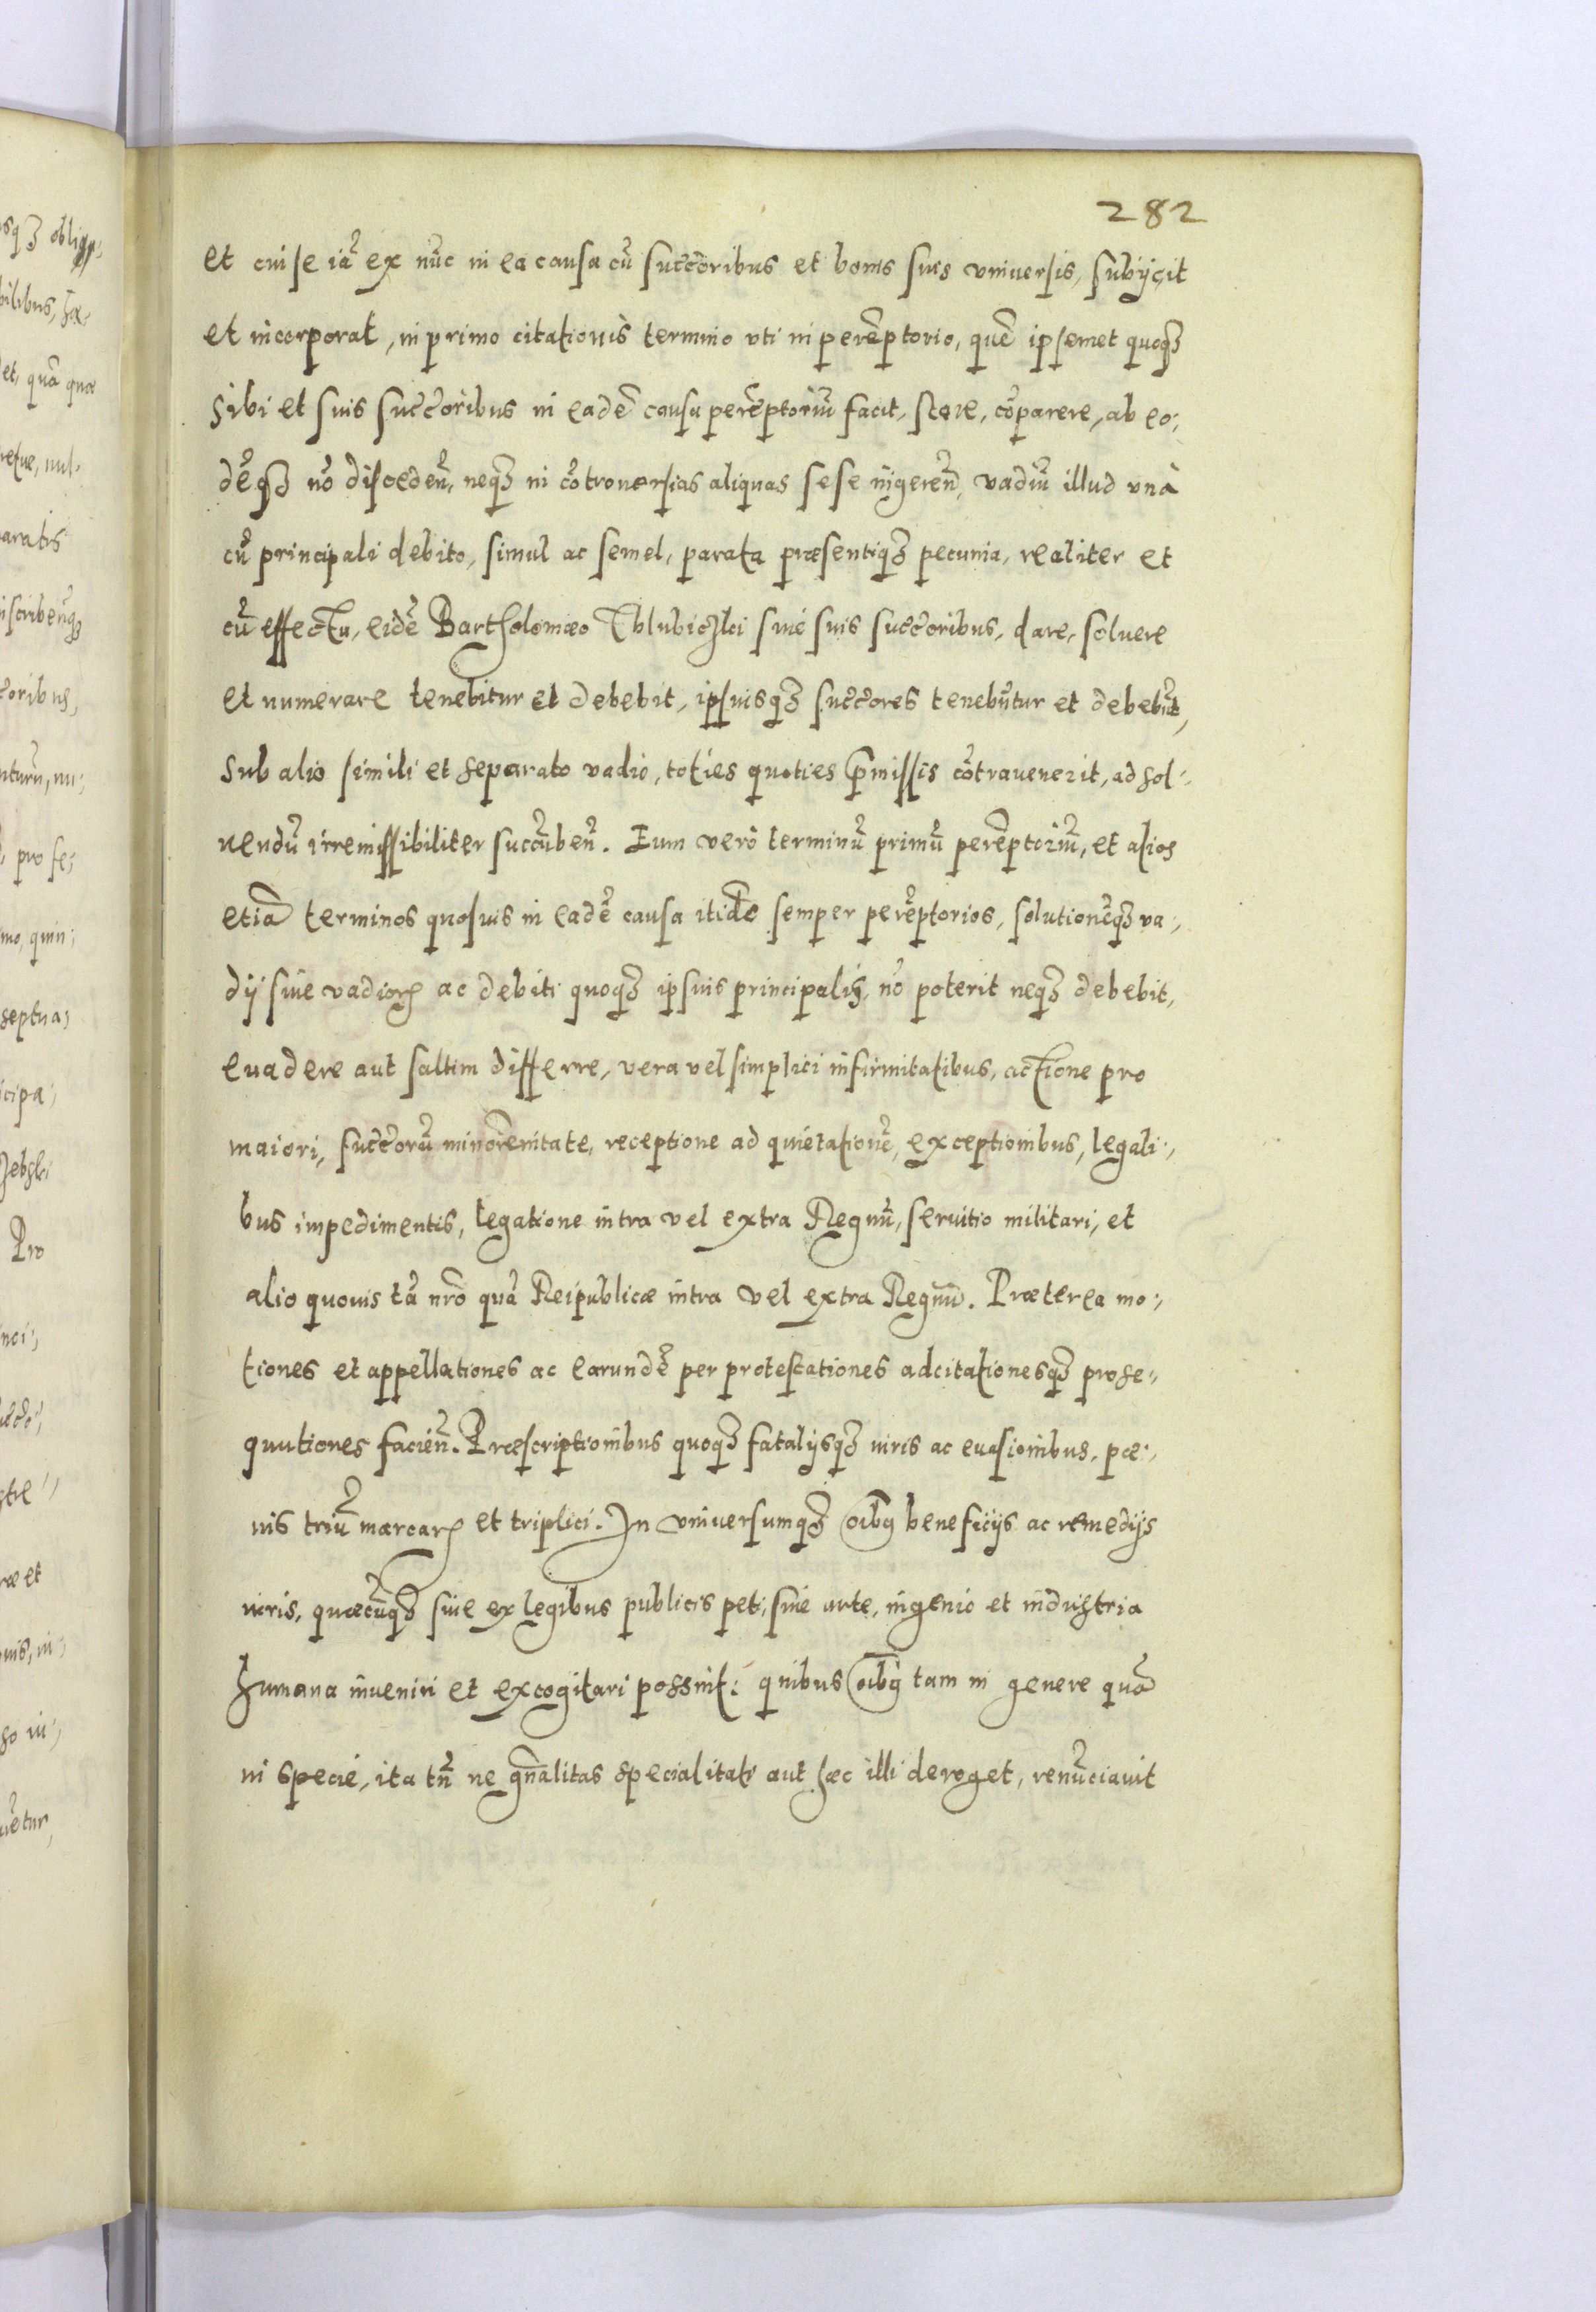 282
et cui se iã ex nũc in ea causa cũ succ̃oribus et bonis suis vniuersis, subÿcit
et incorporat, in primo citationis termino vti in perẽptorio, quẽ ipsemet quoqȝ
sibi et suis succ̃oribus in eadẽ causa perẽptoriũ facit, stare, cõparere, ab eo,
dẽqȝ nõ discedeñ, neqȝ in cõtrouersias aliquas sese ingereñ, vadiũ illud vnà
cũ principali debito, simul ac semel, parata præsentiqȝ pecunia, realiter et
cũ effectu, eidẽ Bartholomæo siue suis succ̃oribus, dare, soluere
et numerare tenebitur et debebit, ipsiusqȝ succ̃ores tenebũtur et debebũt,
sub alio simili et separato vadio, toties quoties p̃missis cõtrauenerit, ad sol,
uendũ irremissibiliter succũbeñ. Eum verò terminũ primũ perẽptoriũ, et alios
etiã terminos quosuis in eadẽ causa itidẽ semper perẽptorios, solutionẽqȝ va,
dÿ siue vadioꝝ ac debiti quoqȝ ipsius principalis, nõ poterit neqȝ debebit,
euadere aut saltim differre, vera vel simplici infirmitatibus, actione pro
maiori, succ̃orũ minorẽnitate, receptione ad quietationẽ, exceptionibus, legali,
bus impedimentis, legatione intra vel extra Regnũ, seruitio militari, et
alio quouis tã nr̃o quã Reipublicæ intra vel extra Regnũ. Præterea mo,
tiones et appellationes ac earundẽ per protestationes adcitationesqȝ prose,
quutiones facieñ. Præscriptionibus quoqȝ fatalÿsqȝ iuris ac euasionibus, pœ,
nis triũ marcaꝝ et triplici. In vniuersumqȝ oĩbꝯ beneficÿs ac remedÿs
iuris, quæcũqȝ siue ex legibus publicis peti, siue arte, ingenio et industria
humana inueniri et excogitari possint: quibus oĩbꝯ tam in genere quã
in specie, ita tñ ne gñalitas specialitati aut hæc illi deroget, renũciauit